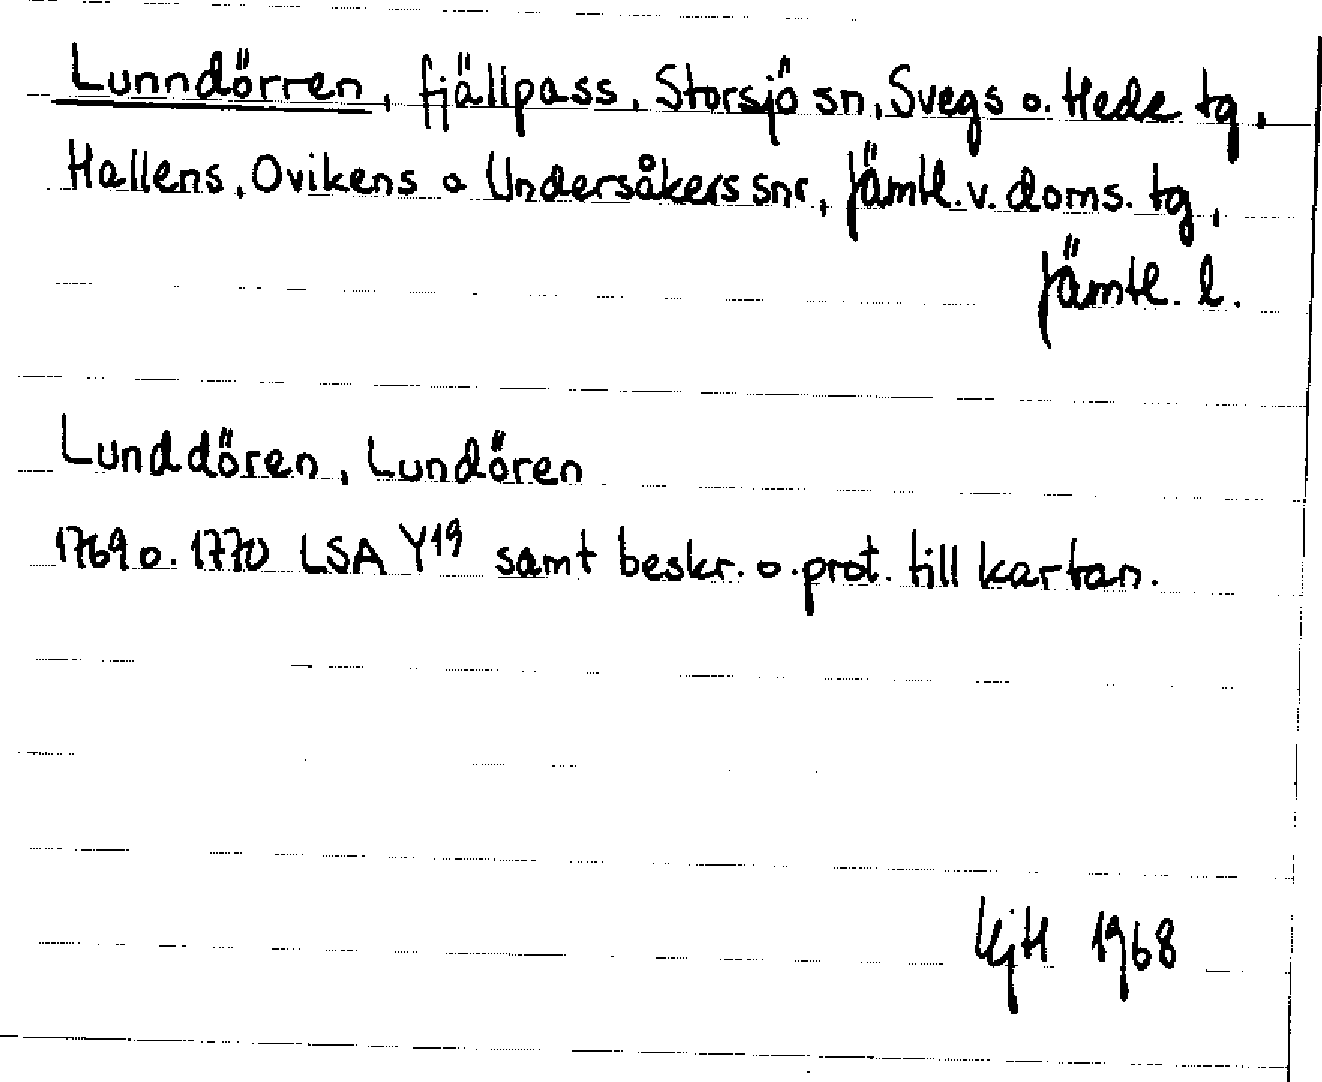 Lunndörren, fjällpass, Storsjö sn, Svegs o. Hede tg,
Hallens, Ovikens o Undersåkers snr, Jämtl. v. doms. tg,
Jämtl. l.
Lunddören, Lundören
1769 o. 1770 LSA Y19 samt beskr. o. prot. till kartan.
1968